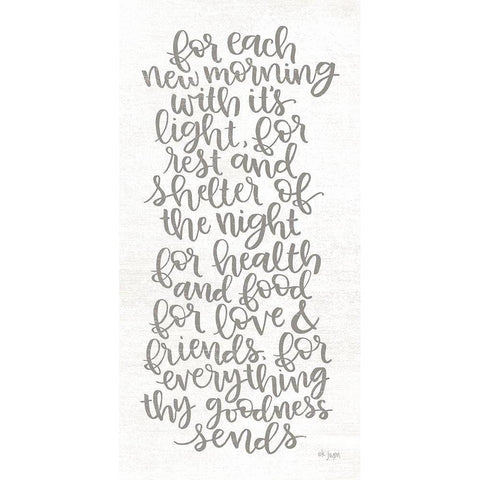 for each
new morning
with it's
light, for
rest and
shelter of
the night
for health
and food
for love &
friends. for
everything
thy goodness
sends